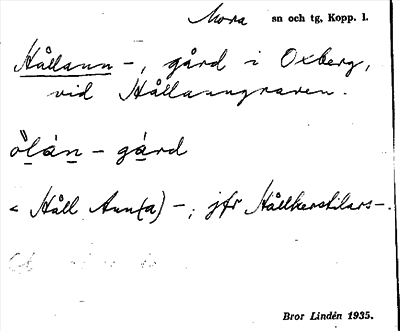 Mora sn och tg, Kopp. l.
Hållann -, gård i Oxberg,
vid Hållanngraven.
òlán - gård
< Håll Ann(a) -; jfr Hållkerstilars-.
Bror Lindén 1935.